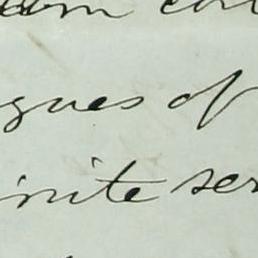 gues of
inite ser